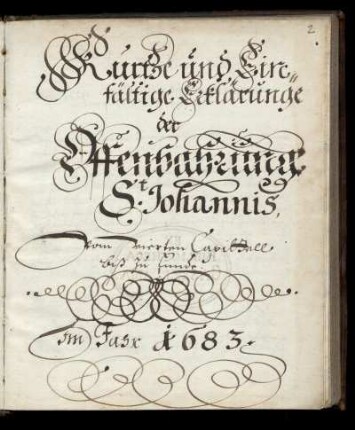 2.
Kurtze und Ein⸗
fältige Erklärunge
der
Offenbahrung
St. Johannis,
Vom Vierten Capittall
biß zu Ende.
Im Jahr 1683.